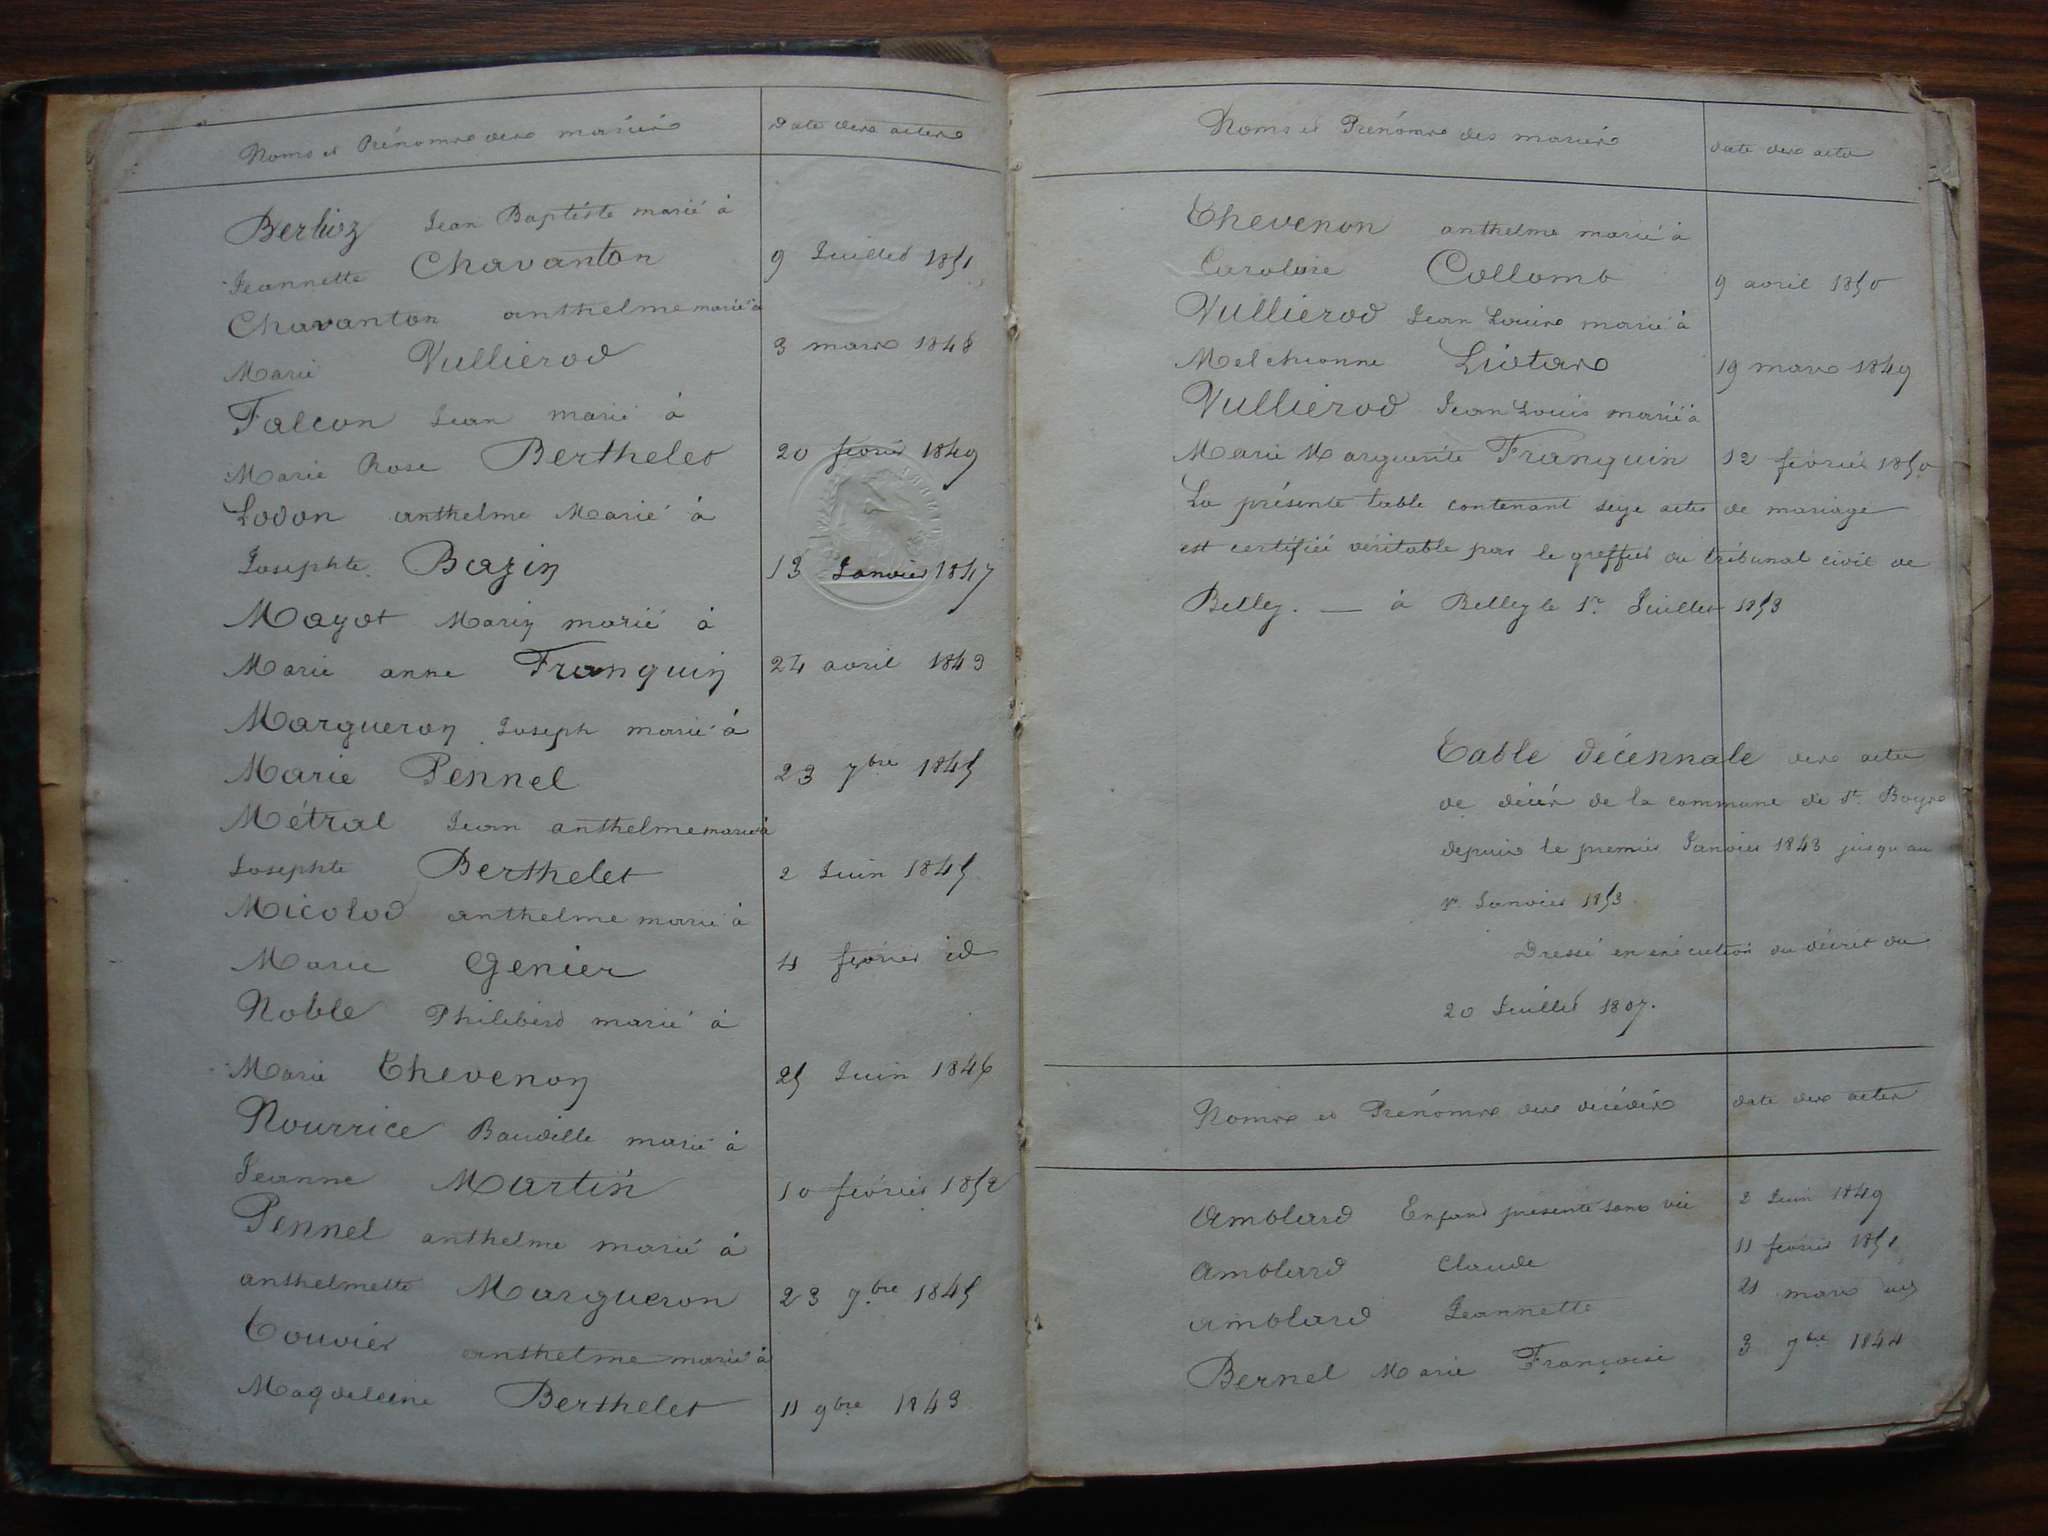 Noms et Prénoms des mariés
Date des actes
Berlioz Jean Baptiste marié à
Jeannette Chavanton 9 Juillet 1851
Chavanton anthelme marié à
Marie Vullierod 3 mars 1848
Falcon Jean marié à
Marie Rose Berthelet 20 février 1849
Lodon anthelme Marié à
Josephte Bazin 13 Janvier 1847
Mayot Marin marié à
Marie anne Franquin 24 avril 1843
Margueron Joseph marié à
Marie Pennel 23 7bre 1845
Métral Jean anthelme marié à
Josephte Berthelet 2 Juin 1845
Micolod anthelme marié à
Marie Genier 4 février id
Noble Philibert marié à
Marie Chevenon 25 Juin 1846
Nourrice Baudille marié à
Jeanne Martin 10 février 1852
Pennel anthelme marié à
anthelmette Margueron 23 7bre 1845
Couvier anthelme marié à
Magdeleine Berthelet 11 9bre 1843
Noms et Prénoms des mariés
date des actes
Chevenon anthelme marié à
Caroloire Collomb 9 avril 1850
Vullierod Jean Louis marié à
Melchionne Liotard 19 mars 1849
Vullierod Jean Louis marié à
Marie Marguerite Franquin 12 février 1850
La présente table contenant seize actes de mariage
est certifiée véritable par le greffier du tribunal civil de
Belley. — à Belley le 1er Juillet 1853
Table décennale des actes
de décès de la commune de St. Boys
depuis le premier Janvier 1843 jusqu'au
1er Janvier 1853.
Dressé en exécution du décret du
20 Juillet 1807.
Noms et Prénoms des décédés
date des actes
Amblard Enfant présenté sans vie 2 Juin 1849
Amblard Claude 11 février 1851
Amblard Jeannette 21 mars
Bernel Marie Françoise 3 7bre 1844